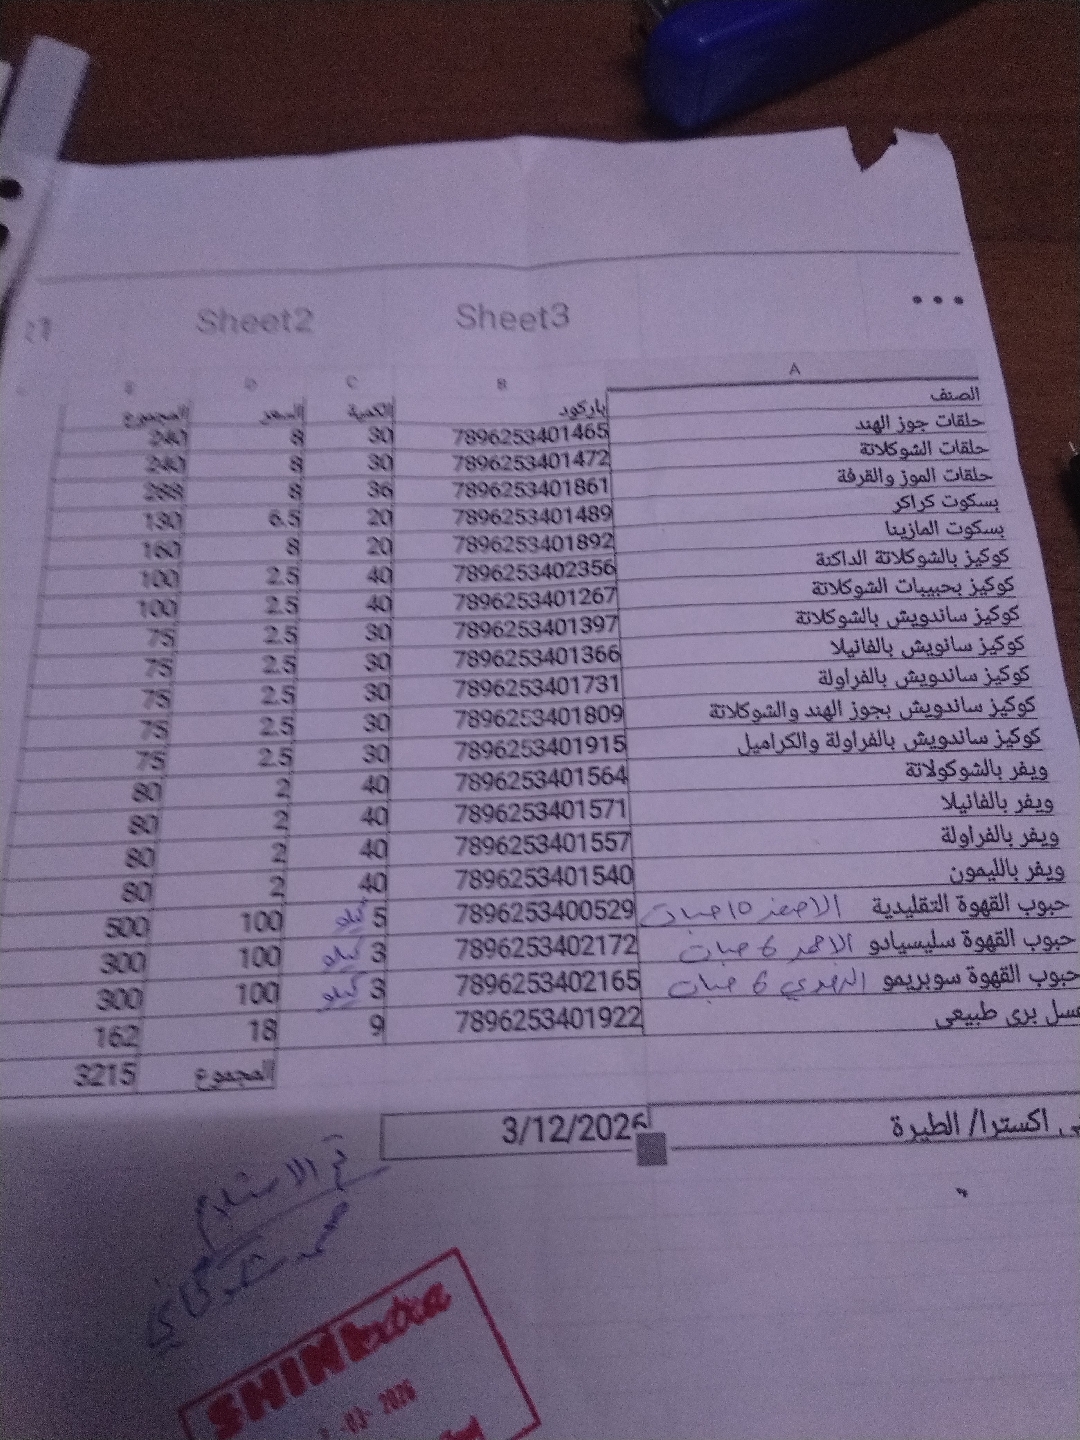 Sheet2 Sheet3 •••
A B C D E
الصنف باركود الكمية السعر المجموع
حلقات جوز الهند 7896253401465 30 8 240
حلقات الشوكلاتة 7896253401472 30 8 240
حلقات الموز والقرفة 7896253401861 36 8 288
بسكوت كراكر 7896253401489 20 6.5 130
بسكوت المازينا 7896253401892 20 8 160
كوكيز بالشوكلاتة الداكنة 7896253402356 40 2.5 100
كوكيز بحبيبات الشوكلاتة 7896253401267 40 2.5 100
كوكيز ساندويش بالشوكلاتة 7896253401397 30 2.5 75
كوكيز سانويش بالفانيلا 7896253401366 30 2.5 75
كوكيز ساندويش بالفراولة 7896253401731 30 2.5 75
كوكيز ساندويش بجوز الهند والشوكلاتة 7896253401809 30 2.5 75
كوكيز ساندويش بالفراولة والكراميل 7896253401915 30 2.5 75
ويفر بالشوكولاتة 7896253401564 40 2 80
ويفر بالفانيلا 7896253401571 40 2 80
ويفر بالفراولة 7896253401557 40 2 80
ويفر بالليمون 7896253401540 40 2 80
حبوب القهوة التقليدية الاصفر 10 حبات 7896253400529 5 كيلو 100 500
حبوب القهوة سليسيادو الاحمر 6 حبات 7896253402172 3 كيلو 100 300
حبوب القهوة سوبريمو 6 حبات 7896253402165 3 كيلو 100 300
عسل بري طبيعي 7896253401922 9 18 162
المجموع 3215
اكسترا/ الطيرة 3/12/2026
تم الاستلام
SHIN Extra
03 2026